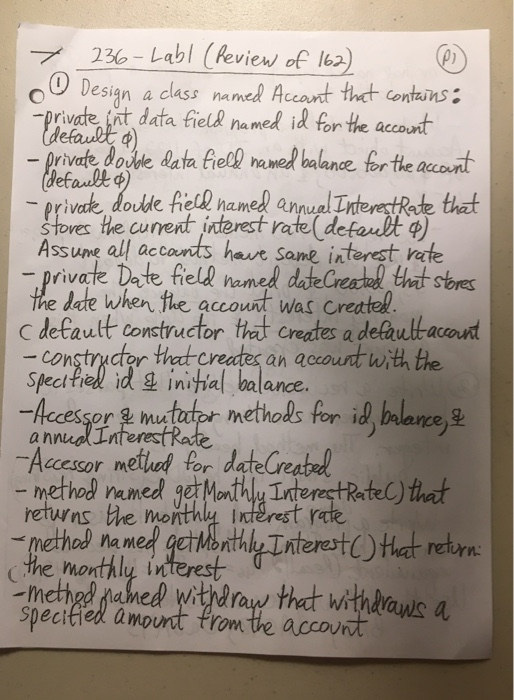 → 236 - Lab1 (Review of 162) P1
① Design a class named Account that contains:
- private int data field named id for the account
(default φ)
- private double data field named balance for the account
(default φ)
- private double field named annualInterestRate that
stores the current interest rate (default φ)
Assume all accounts have same interest rate
- private Date field named dateCreated that stores
the date when the account was created.
c default constructor that creates a default account
- constructor that creates an account with the
specified id & initial balance.
- Accessor & mutator methods for id, balance, &
annualInterestRate
- Accessor method for dateCreated
- method named getMonthlyInterestRate() that
returns the monthly interest rate
- method named getMonthlyInterest() that return
the monthly interest
- method named withdraw that withdraws a
specified amount from the account